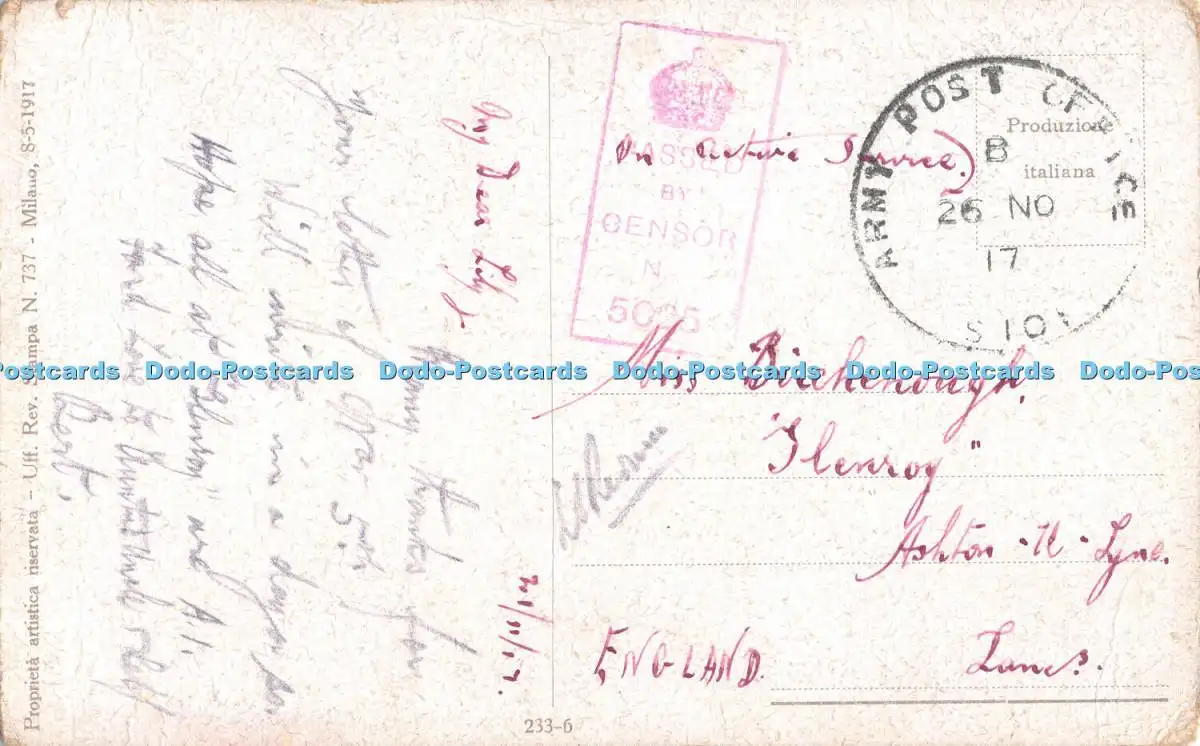 Proprietà artistica riservata - Uff. Rev. Stampa N. 737 - Milano, 8-5-1917
21/11/17.
My Dear Lily
Many thanks for
your letter of Nov 5th
Will write in a day or so.
Hope all at "Glenroy" are A.1.
love to
Bert.
233-6
PASSED
BY
CENSOR
N
5095
On Active Service.
ARMY POST OFFICE
B
26 NO
17
S 10
Produzione
italiana
Miss Birchenough.
"Glenroy"
Ashton-U-Lyne.
Lancs.
ENGLAND.
Dodo-Postcards Dodo-Postcards Dodo-Postcards Dodo-Postcards Dodo-Postcards